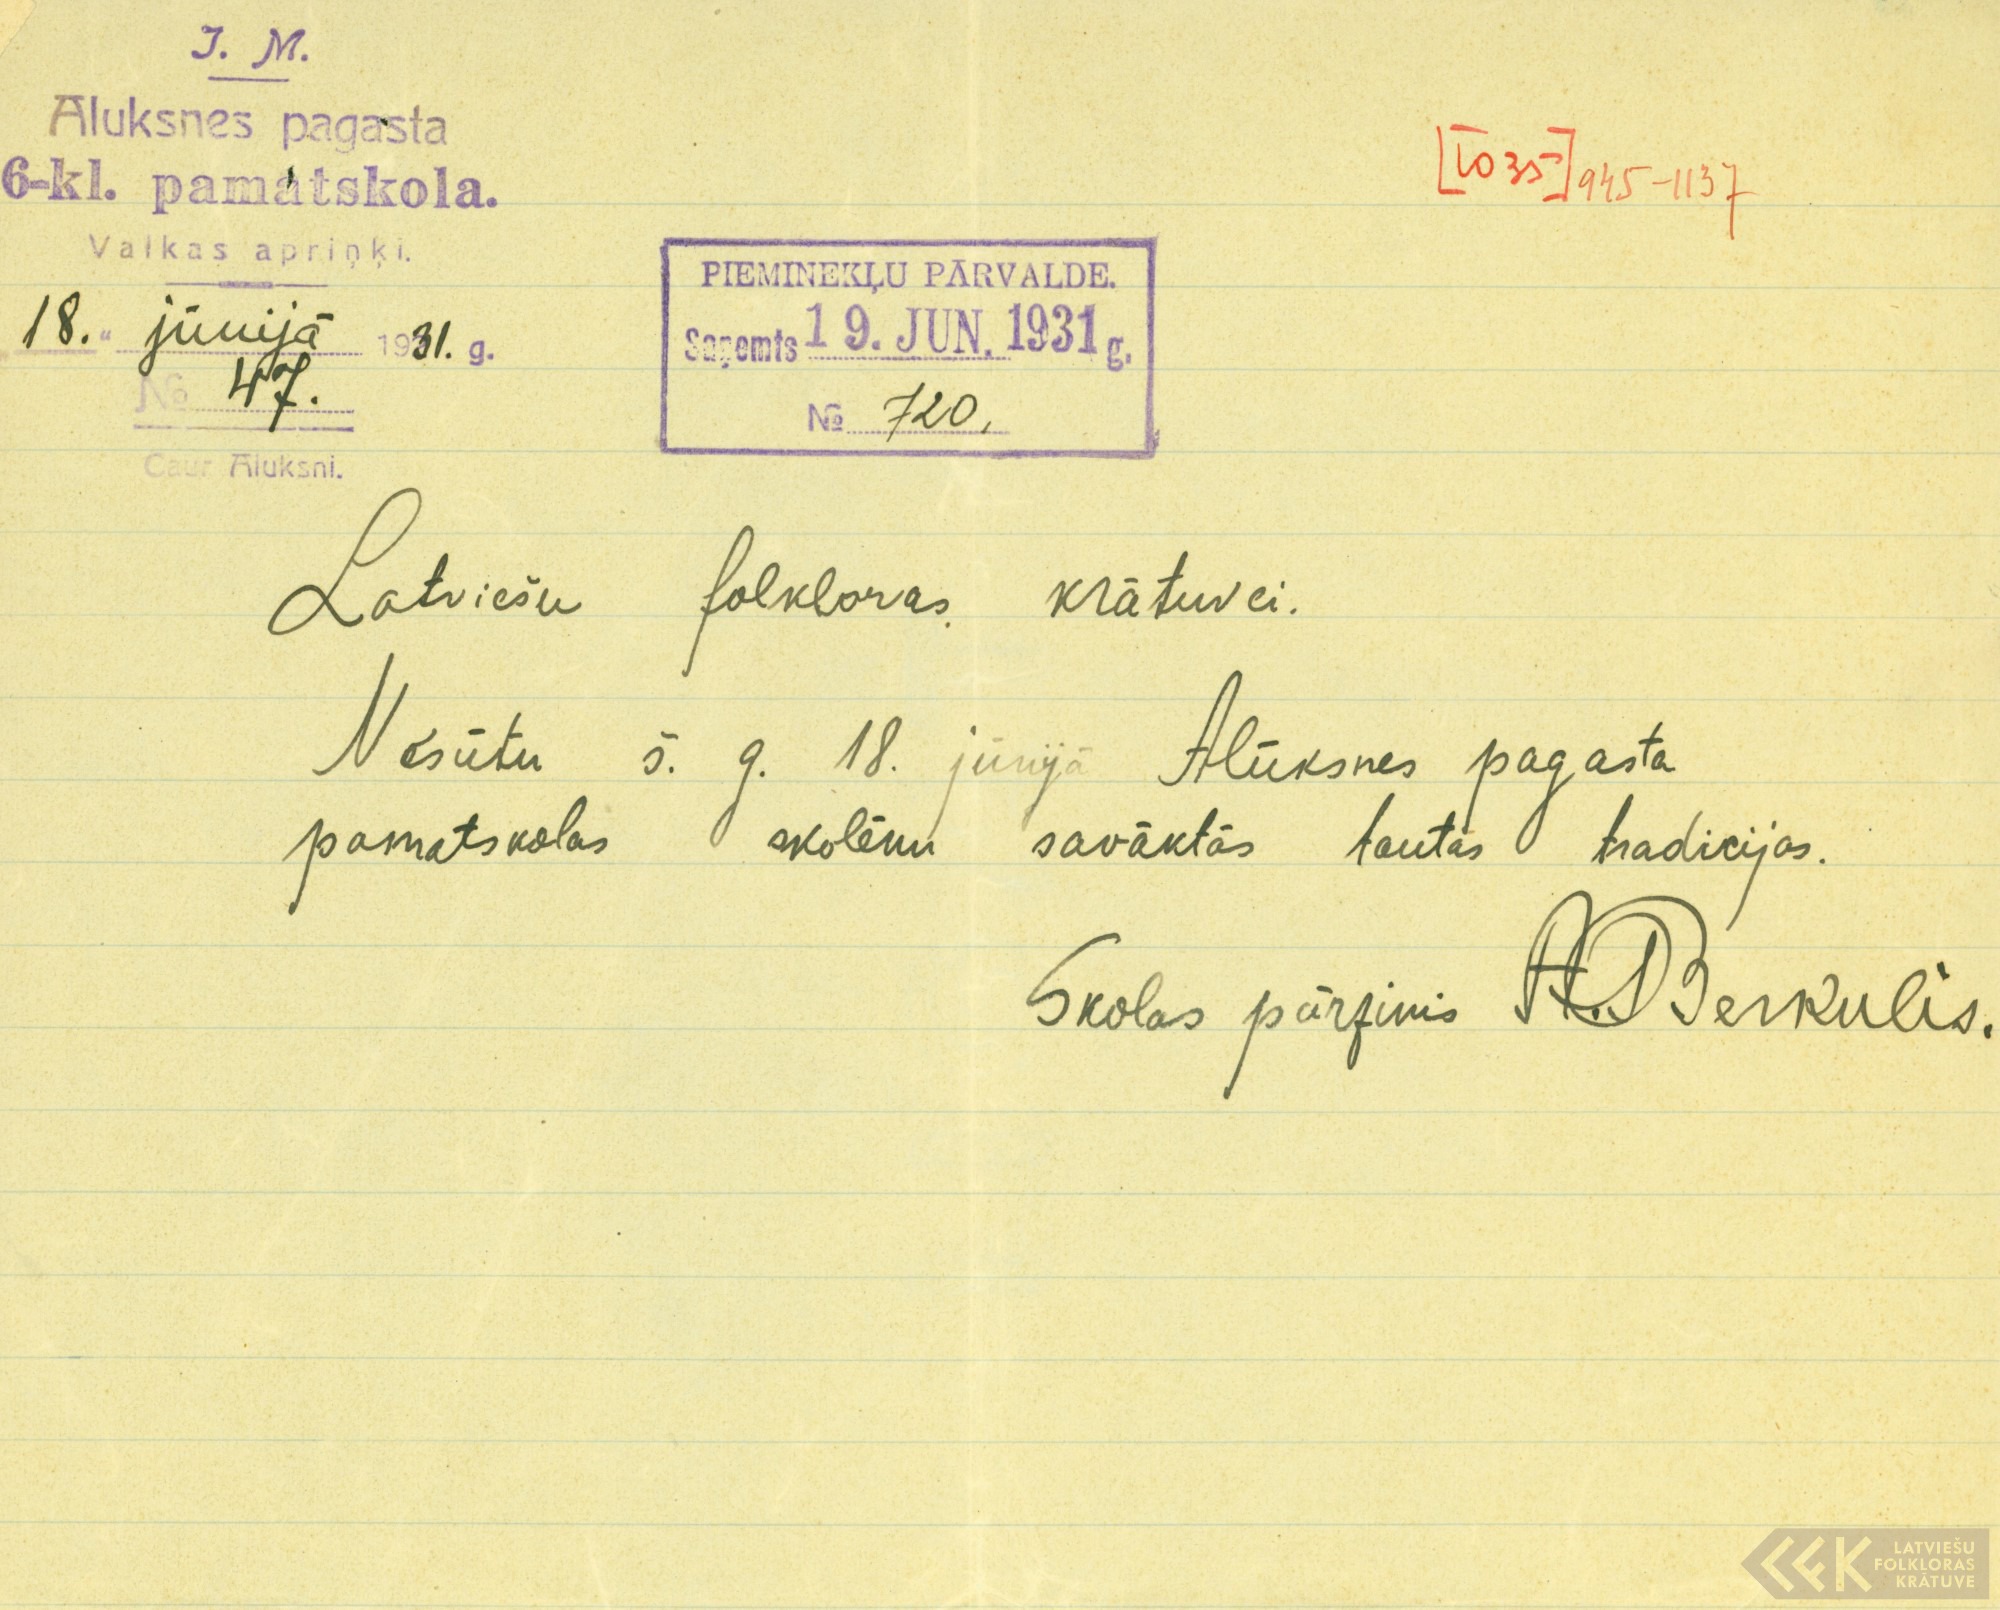 I. M.
Aluksnes pagasta
6-kl. pamatskola.
Valkas apriņķi.
18. " jūnijā 1931. g.
№ 47.
Caur Aluksni.
[1035] 945-1137
PIEMINEKĻU PĀRVALDE.
Saņemts 19. JUN. 1931 g.
№ 720.
Latviešu folkloras krātuvei.
Nosūtu š. g. 18. jūnijā Alūksnes pagasta
pamatskolas skolēnu savāktās tautas tradicijas.
Skolas pārzinis A. Berkulis.
LATVIEŠU
FOLKLORAS
KRĀTUVE